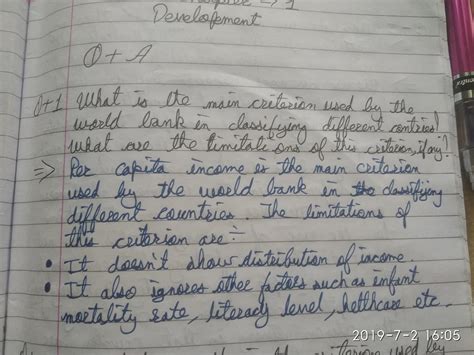 → 1
Development
Q + A
Q+1 What is the main criterion used by the
world bank in classifying different contries?
what are the limitations of this criterion, if any?
⇒ Per capita income is the main criterion
used by the world bank in the classifying
different countries. The limitations of
this criterion are :-
• It doesn't show distribution of income.
• It also ignores other factors such as infant
mortality rate, literacy level, helthcare etc.
2019-7-2 16:05
used by